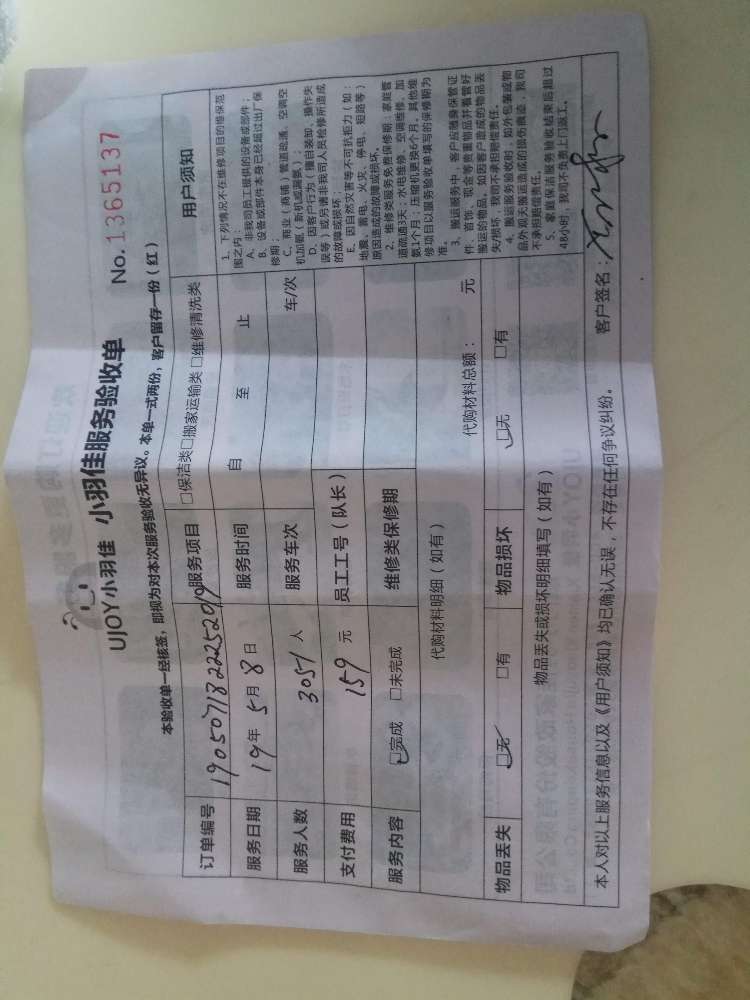 UJOY小羽佳 小羽佳服务验收单 No.1365137
本验收单一经核签，即视为对本次服务验收无异议。本单一式两份，客户留存一份（红）
订单编号 190507182225201 服务项目 □保洁类□搬家运输类 □维修清洗类 用户须知
服务日期 19年 5月 8日 服务时间 自 至 止
服务人数 3051 人 服务车次 车/次
支付费用 159 元 员工工号（队长）
服务内容 □完成 □未完成 维修类保修期
代购材料明细（如有） 代购材料总额： 元
物品丢失 □无 □有 物品损坏 □无 □有
物品丢失或损坏明细填写（如有）
1、下列情况不在维修项目的维保范
围之内：
A、非我司员工提供的设备或部件；
B、设备或部件本身已经超过出厂保
修期；
C、商业（商铺）管道疏通、空调空
机加氨（新机或漏氨）；
D、因客户行为（擅自装卸、操作失
误等）或另请非我司人员检修所造成
的故障或损坏；
E、因自然灾害等不可抗拒力（如：
地震、雷电、火灾、停电、短路等）
原因造成的故障或损坏。
2、维修类服务免费保修期：家庭管
道疏通3天；水电维修、空调维修、加
氨1个月；压缩机更换6个月。其他维
修项目以服务验收单填写的保修期为
准。
3、搬运服务中，客户应随身保管证
件、首饰、现金等贵重物品并看管好
搬运的物品，如因客户造成的物品丢
失/损坏，我司不承担赔偿责任。
4、搬运服务验收时，如外包装或物
品外观无搬运造成的损伤痕迹，我司
不承担赔偿责任。
5、家庭保洁服务验收结束后超过
48小时，我司不负责上门返工。
本人对以上服务信息以及《用户须知》均已确认无误，不存在任何争议纠纷。 客户签名：